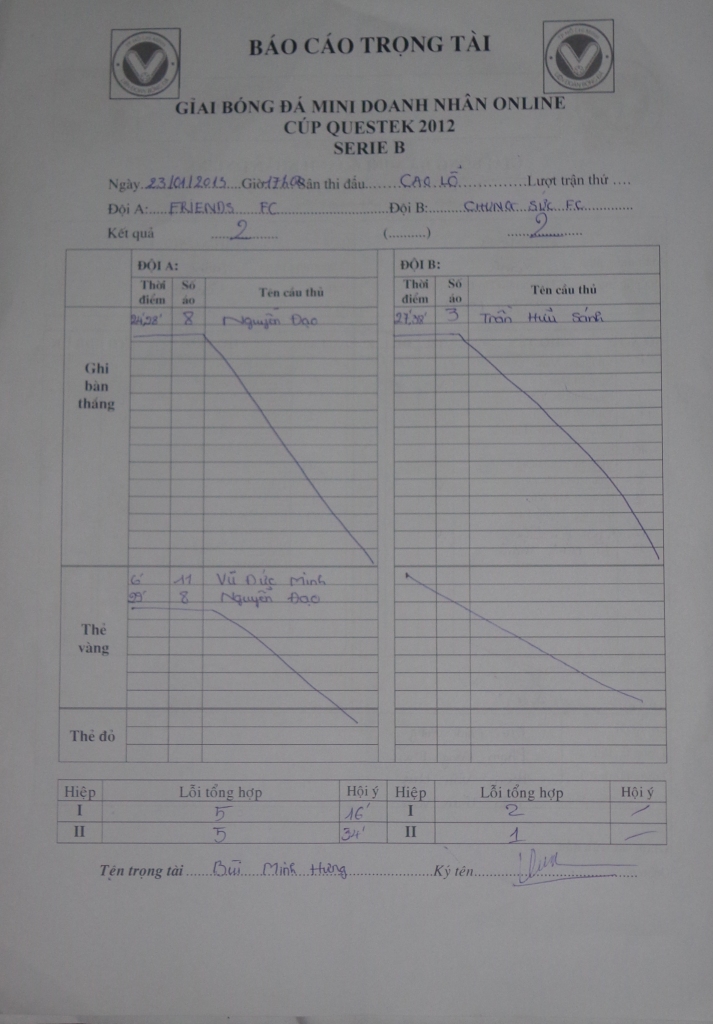 BÁO CÁO TRỌNG TÀI
GIẢI BÓNG ĐÁ MINI DOANH NHÂN ONLINE
CÚP QUESTEK 2012
SERIE B
Ngày 23/01/2013 Giờ Sân thi đấu CAO LỖ Lượt trận thứ ....
Đội A: FRIENDS FC Đội B: CHUNG SỨC FC
Kết quả 2 (..........) 2
ĐỘI A: ĐỘI B:
Thời điểm Số áo Tên cầu thủ Thời điểm Số áo Tên cầu thủ
Ghi bàn thắng
8 Nguyễn Đạo 3 Trần Hữu Sánh
Thẻ vàng
6' 11 Vũ Đức Minh
8 Nguyễn Đạo
Thẻ đỏ
Hiệp Lỗi tổng hợp Hội ý Hiệp Lỗi tổng hợp Hội ý
I 5 16' I 2 –
II 5 34' II 1 –
Tên trọng tài Bùi Minh Hưng Ký tên